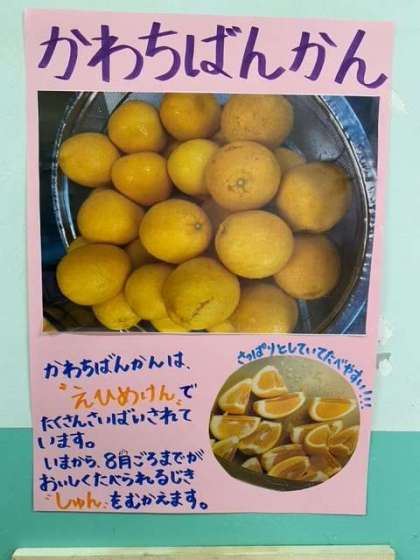 かわちばんかん
かわちばんかんは、
えひめけんで
たくさんさいばいされて
います。
いまから、8月ごろまでが
おいしくたべられるじき
しゅんをむかえます。
さっぱりとしていてたべやすい!!!